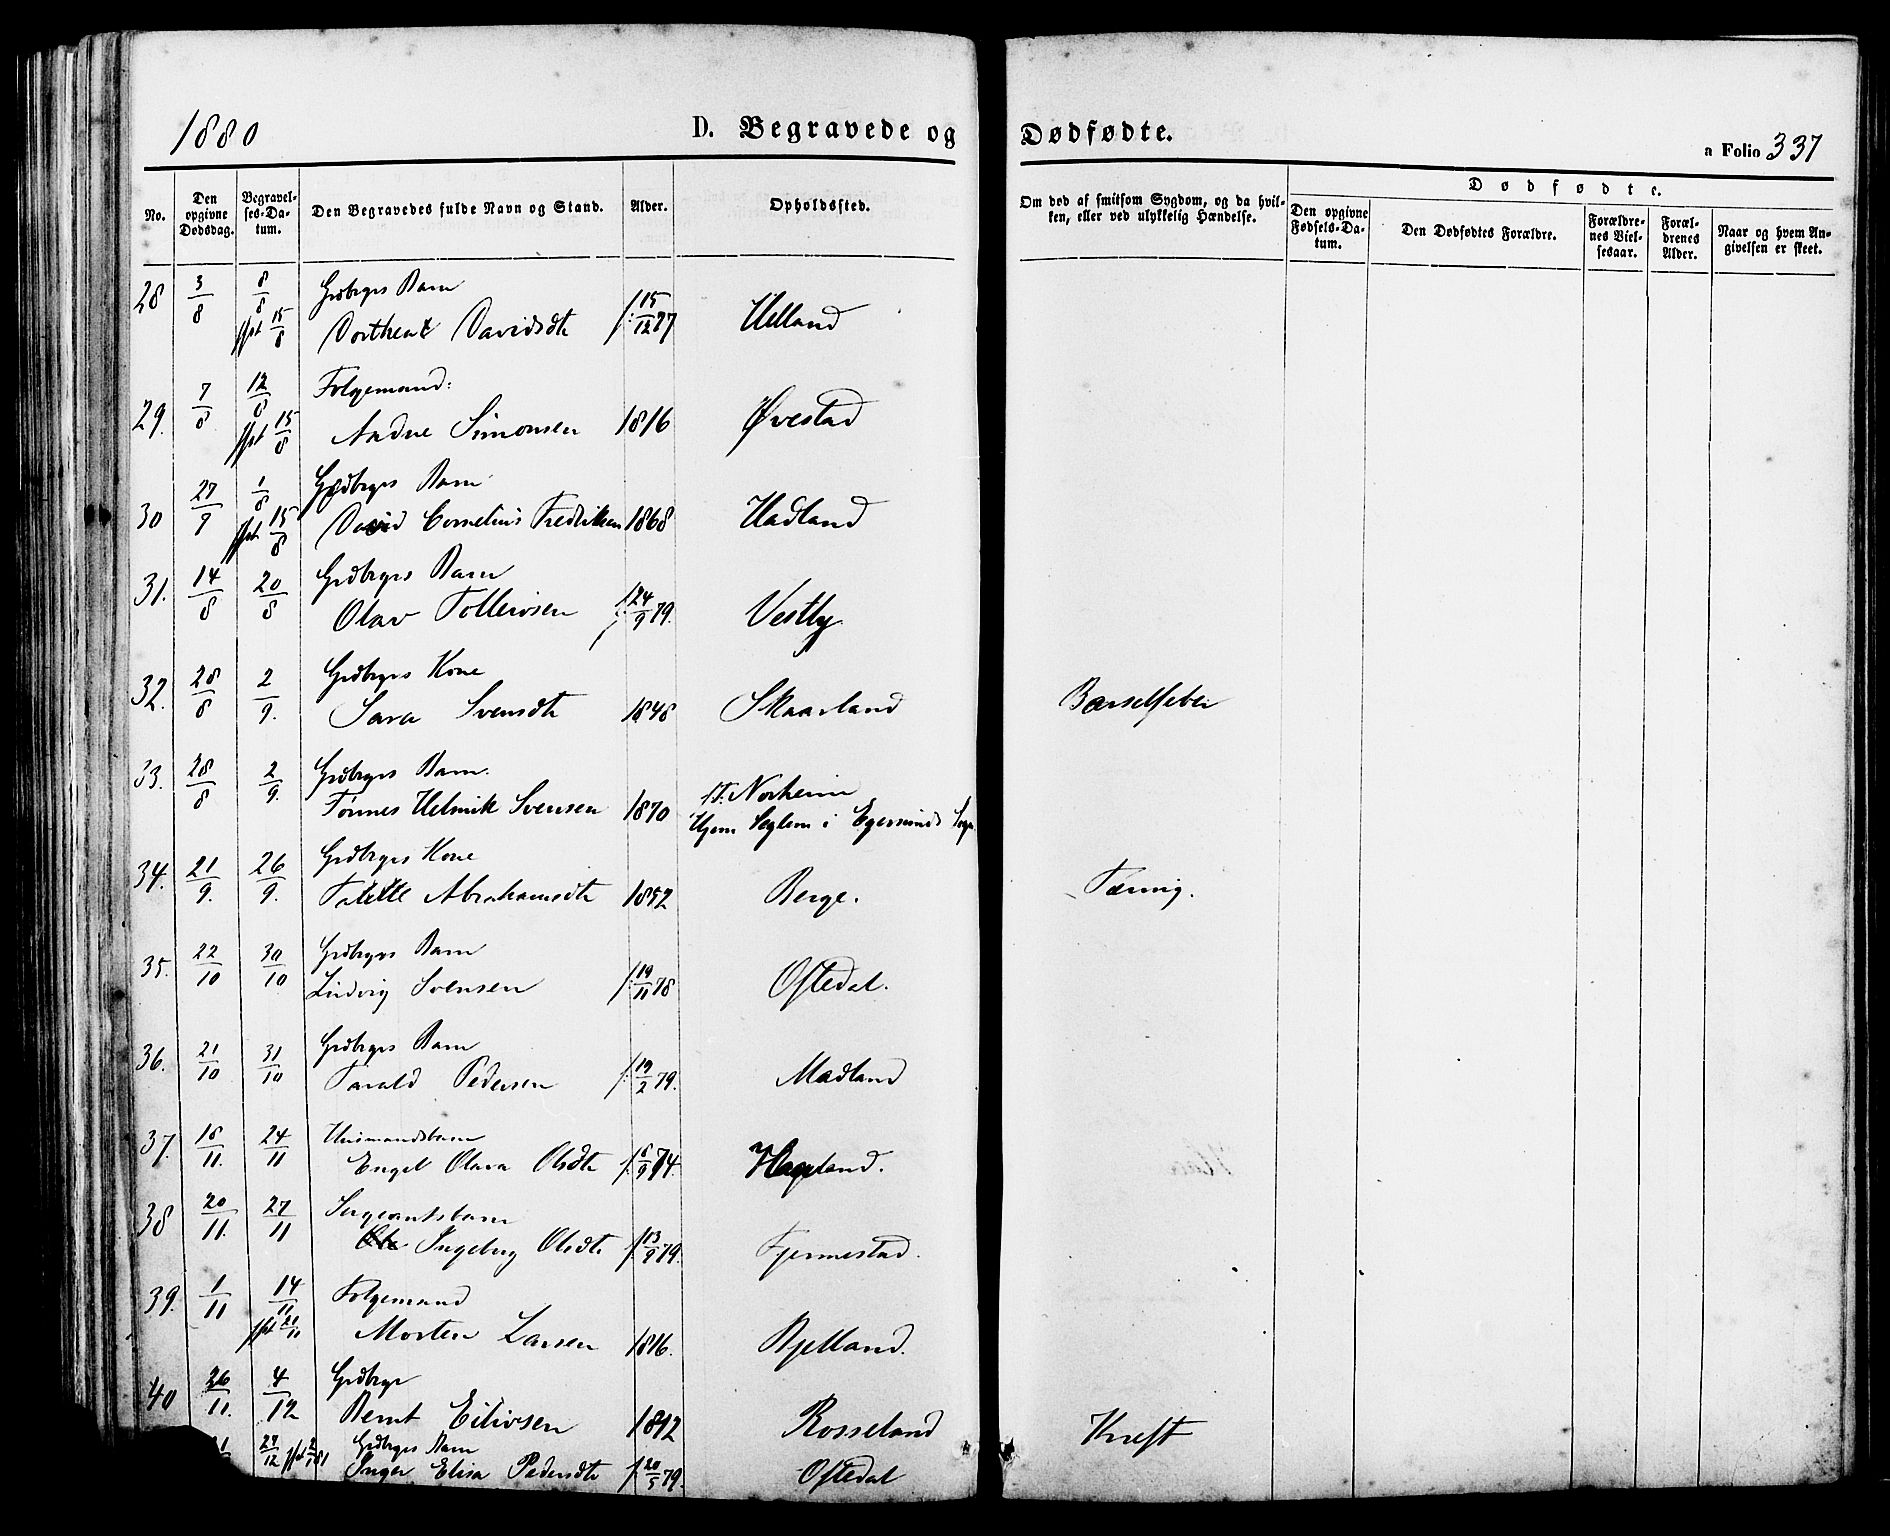 1880
D. Begravede og Dødfødte.
a Folio 337
No.
Den opgivne Dødsdag.
Begravelses-Datum.
Den Begravedes fulde Navn og Stand.
Alder.
Opholdssted.
Om død af smitsom Sygdom, og da hvilken, eller ved ulykkelig Hændelse.
Dødfødte.
Den opgivne Fødsels-Datum.
Den Dødfødtes Forældre.
Forældrenes Vielsesaar.
Forældrenes Alder.
Naar og hvem Angivelsen er skeet.
28 3/8 8/8 Grdbrgrs Barn
15/8 Davidsdtr f. 15/12 77 Helland
29. 7/8 12/8 Folgemand:
15/8 Simonsen 1816 Øvestad
30 27/9 1/8 Grdbrgrs Barn
15/8 David Cornelius Fredriksen 1868 Hadland
31. 14/8 20/8 Grdbrgrs Barn
Olav Tollevsen f. 24/9 79. Vestly
32. 28/8 2/9. Grdbrgrs Kone
Sara Svensdtr 1848 Skaarland Barselfeber
33. 28/8 2/9. Grdbrgrs Barn.
Tønnes Helmik Svensen 1870 Norheim
Hjem Seglem i Egersunds Sogn
34. 21/9. 26/9. Grdbrgrs Kone
Abrahamsdtr 1852 Berge. Tæring.
35. 22/10 30/10 Grdbrgrs Barn
Ludvig Svensen f. 19/11 78 Oftedal.
36. 21/10 31/10 Grdbrgrs Barn
Tarald Pedersen f. 19/2 79. Madland
37. 18/11. 24/11 Husmandsbarn
Engel Olava Olsdtr 74. Hagland.
38 20/11. 27/11 Sergeantsbarn
Ingeborg Olsdtr f. 13/9 79. Fjermestad.
39. 1/11 14/11 Folgemand
21/11 Morten Larsen 1816. Bjelland.
40 26/11. 4/12 Grdbrgr
Bernt Eilivsen 1812 Rosseland Kreft
Grdbrgrs Barn
Inger Elisa Pedersdtr f. 20/5 79. Oftedal